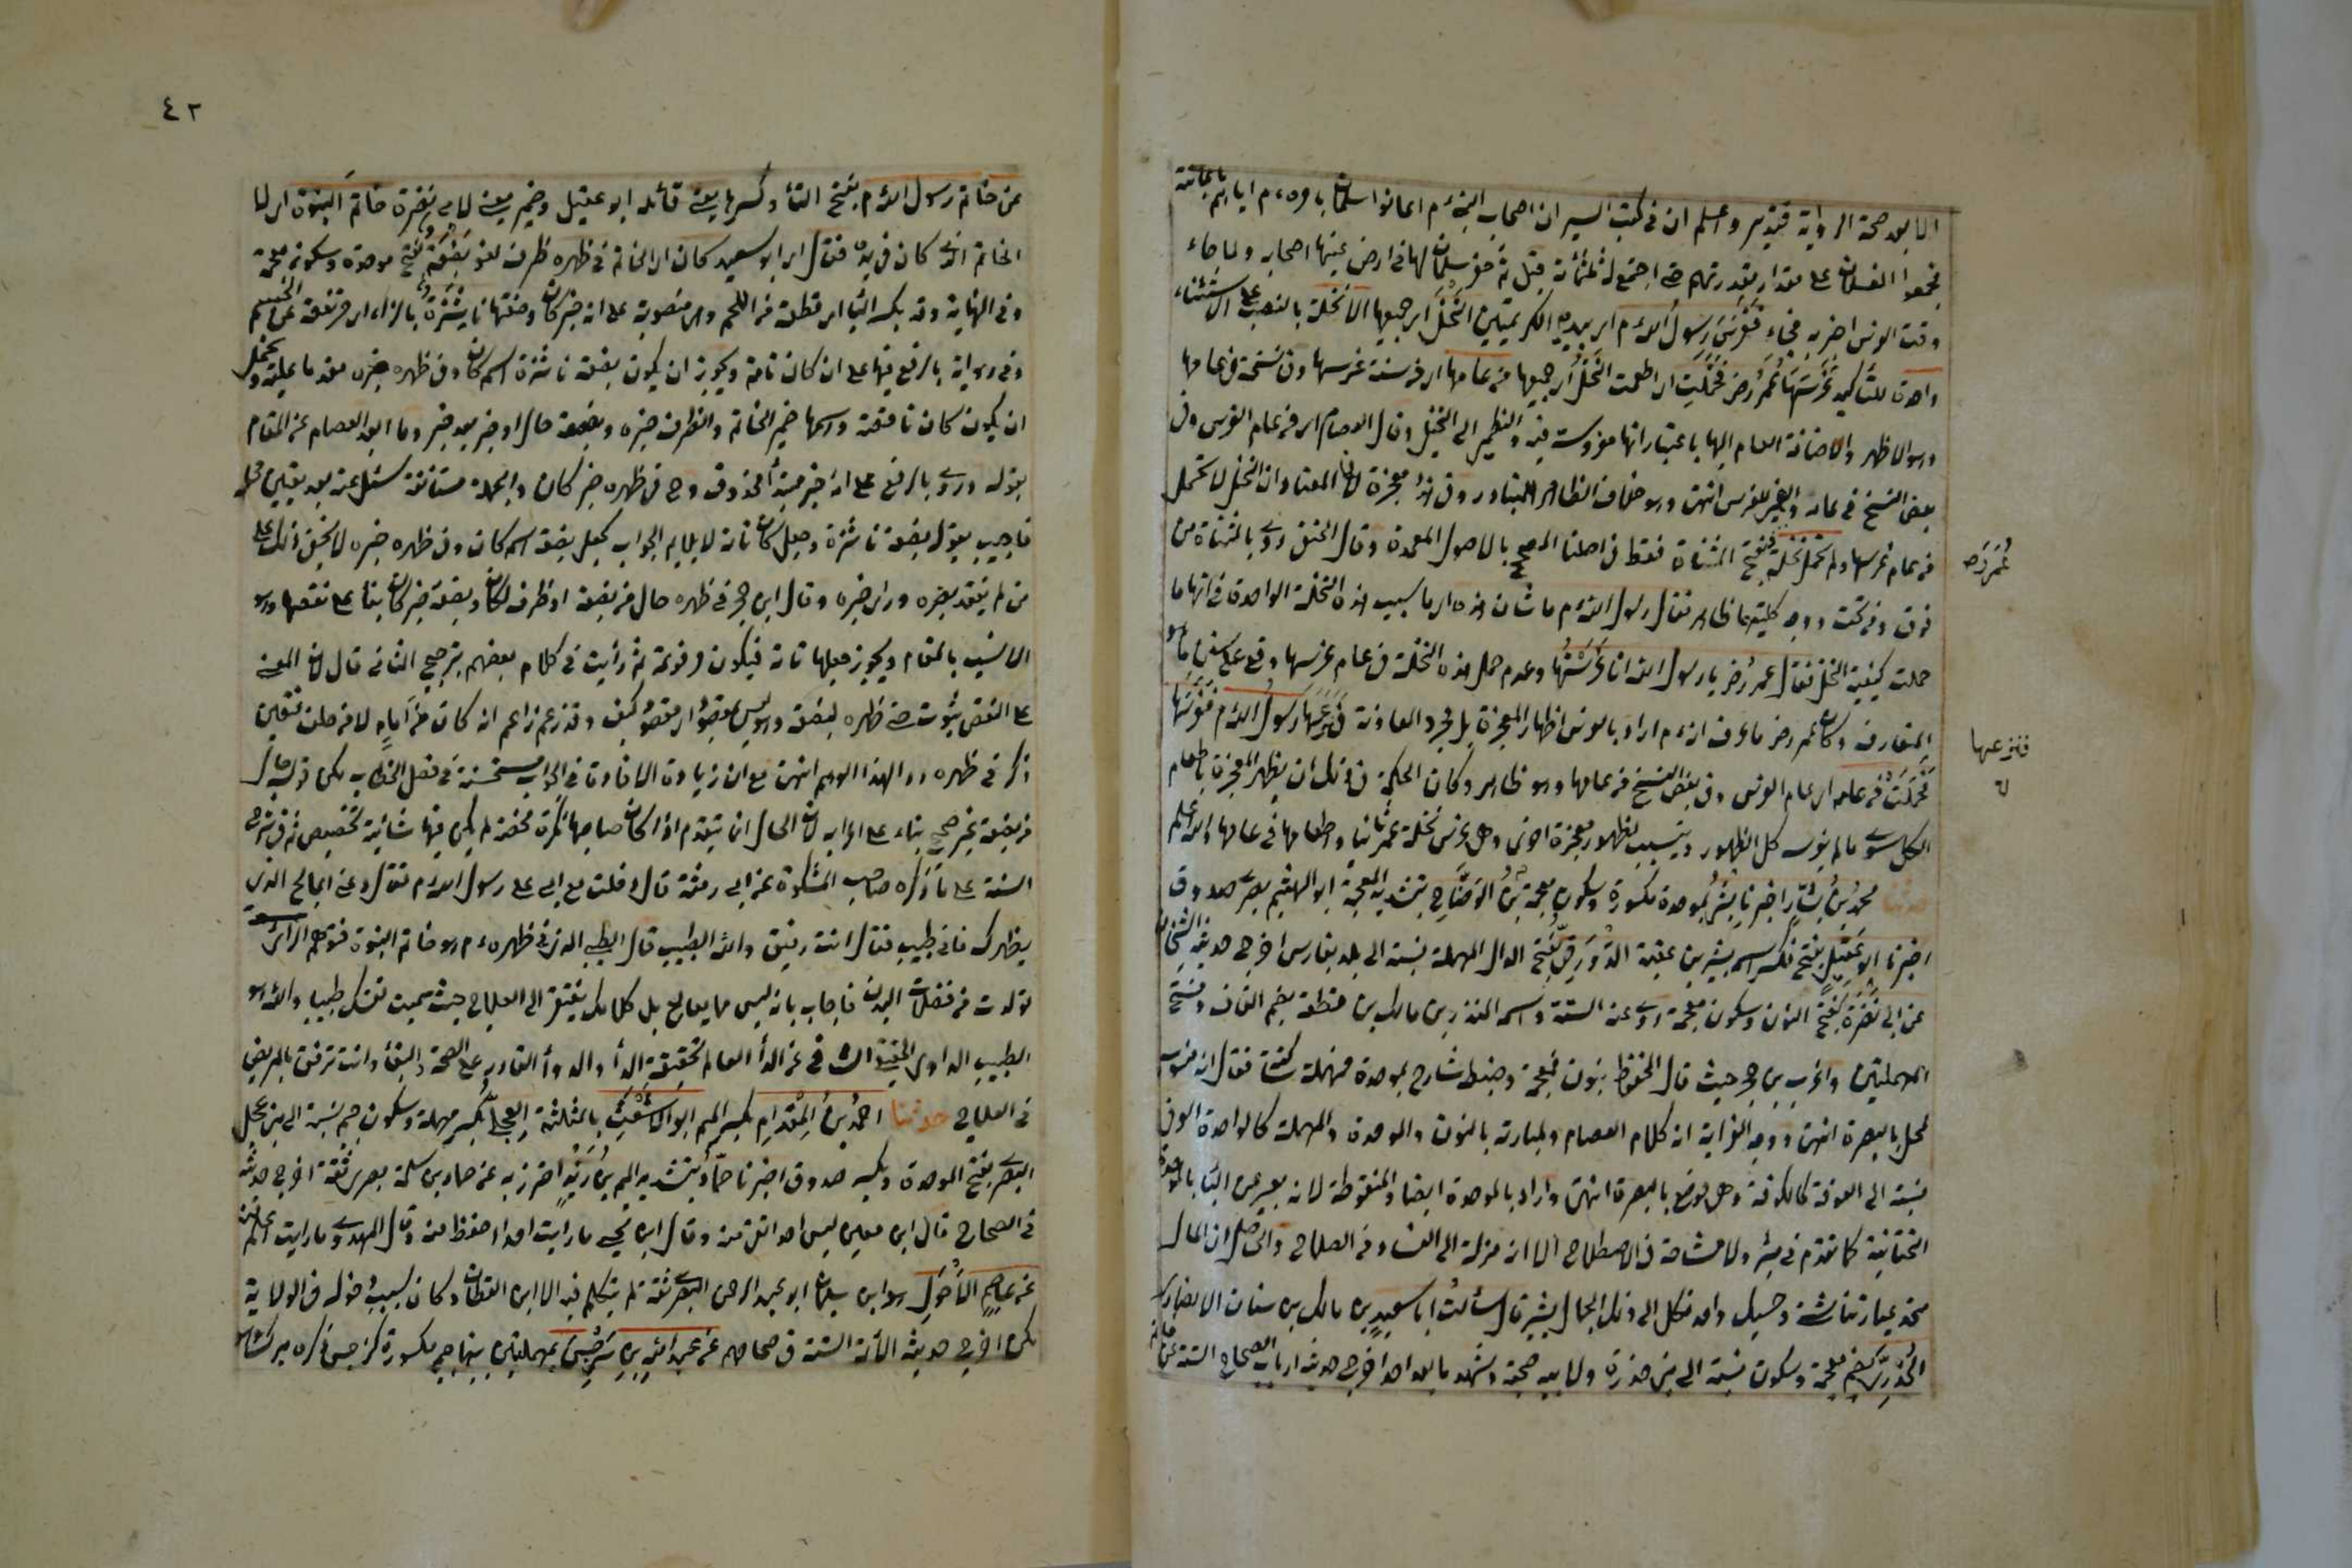 الا بعد صحة الرواية فتدبر واعلم ان في كتب السير ان اصحاب النبي ءم اعانوا سلمان بامره ءم اياهم باعانته
فجمعوا الفسلان على مقدار مقدرتهم حتى اجتمع له ثلثمائة فسل ثم حفر سلمان لها في ارض عينها اصحابه ولما جاء
وقت الغرس اخبر به فجاء فَغَرَسَ رَسُولُ اللهءم اي بيديه الكريمتين النَّخْلَ اي جميعها الا نخلة بالنصب على الاستثناء
واحدة للتأكيد غَرَسَهَا عُمَرُ رض فَحَمَلَتِ اي اطعمت النَّخْلُ اي جميعها من عامها اي من سنة غرسها وفي نسخة في عامها
وهو الاظهر والاضافة العام اليها باعتبار انها مغروسة فيه والضمير الى النخيل وقال العصام اي من عام الغرس وفي
بعض النسخ في عامه والضمير للغرس انتهى وهو خلاف الظاهر المتبادر وفي هذا معجزة لان المعتاد ان النخل لا تحمل
من عام غرسها ولم تحمل نخلة بفتح المثناة فقط في اصلنا المصحح بالاصول المعتمدة وقال الحنفي روى بالمثناة من
فوق ومن تحت ووجه كليتهما ظاهر فقال رسول اللهءم ما شان هذه اي ما سبب هذه النخلة الواحدة في انها ما
حملت كبقية النخل فقال عمر رض يا رسول الله انا غَرَسْتُهَا وعدم حمل هذه النخلة في عام غرسها وقع على سنن ما هو
المتعارف وكان عمر رض ما عرف انه ءم اراد بالغرس اظهار المعجزة بل مجرد المعاونة فَنَزَعَهَا رَسُولُ اللهءم فَغَرَسَهَا
فَحَمَلَتْ من عامه اي عام الغرس وفي بعض النسخ من عامها وهو ظاهر وكان الحكمة في ذلك ان يظهر المعجزة باطعام
الكل سوى ما لم يغرسه كل الظهور ويتسبب لظهور معجزة اخرى وهي غرس نخلة عمر ثانيا واطعامها في عامها والله اعلم
حدثنا محمدُ بنُ بشَّارٍ اخبرنا بِشْرُ بموحدة مكسورة وسكون معجمة بْنُ الوَضَّاحِ بتشديد المعجمة ابو الهيثم بصرى صدوق
اخبرنا ابو عَقِيلٍ بفتح فكسر اسمه بشير بن عقبة الدَّوْرَقِيُّ بفتح الدال المهملة نسبة الى بلد بفارس اخرج حديثه الشيخان
عن ابي نَضْرَةَ بفتح النون وسكون معجمة روى عنه الستة واسمه المنذر بن مالك بن قطعة بضم القاف وفتح
المهملتين واغرب بن حجر حيث قال المحفوظ بنون فمعجمة وضبط شارح بموحدة فمهملة فقال انه منسوب
لمحل بالبصرة انتهى ووجه الغرابة ان كلام العصام بالنون والموحدة والمهملة كالواحدة العوقي
نسبة الى العوقة كالكوفة وهي موضع بالبصرة انتهى واراد بالموحدة ايضا والمنقوطة لانه يعبر عن الياء بالموحدة
التحتانية كما تقدم في بشر ولا مشاحة في الاصطلاح الا انه منزلة الى الفساد من الصلاح والحاصل ان المآل
متحد عباراتنا شتى وحسنك واحد فكل الى ذاك الجمال يشير قال سألت ابا سعيد بن مالك بن سنان الانصارى
الخُدْرِيَّ بضم معجمة وسكون نسبة الى بني خدرة ولابيه صحبة وشهد ما بعد احد اخرج حديثه ارباب الصحاح الستة عن خاتم
عُمَرُ رَض
فنزعها
٤٢
عن خاتم رسول اللهءم بفتح التاء وكسرها يعني قائله ابو عقيل وضمير يعني لابي نضرة خاتم النبوة اى لا
الخاتم الذى كان في يده فقال اى ابو سعيد كان اى الخاتم في ظهره ظرف لغو بَضْعَةً بفتح موحدة وسكون معجمة
وفي النهاية وقد يكسر الباء اى قطعة من اللحم وهي منصوبة على انه خبر كان وصفتها ناشِزَةً بالزاء اى مرتفعة عن الجسم
وفي رواية بالرفع فيها على ان كان تامة ويجوز ان يكون بضعة ناشزة اسم كان وفي ظهره خبره مقدما عليه ويحتمل
ان يكون كان ناقصة واسمها ضمير الخاتم والظرف خبره وبضعة حال او خبر بعد خبر وما ابعد العصام عن المقام
بقوله وروى بالرفع على انه خبر مبتدأ محذوف وح في ظهره خبر كان والجملة مستأنفة سئل عنه بعد تعيين محله
فاجيب بقوله بضعة ناشزة وجعل كان تامة لا يلايم الجواب بجعل بضعة اسم كان وفي ظهره خبره لا يخفى ذلك على
من لم يفقد بصره وراى خبره وقال ابن حجر في ظهره حال من بضعة او ظرف لكان وبضعة خبر كان بناء على نقصها وهو
الانسب بالمقام ويجوز جعلها تامة فيكون مرفوعة ثم رأيت في كلام بعضهم ترجيح الثاني قال لان المعنى
على النقص ثبوت في ظهره لبضعة وهو ليس بمقصود كيف وقد زعم زاعم انه كان من امامه لا من خلفه فتعين
ذكر في ظهره ردا لهذا الوهم انتهى مع ان زيادة الافادة في الجواب مستحسنة في فصل الخطاب لكن قوله حال
من بضعة غير صحيح بناء على اعرابه لان الحال ان يتقدم اذا كان صاحبها نكرة محضة لم يكن فيها شائبة تخصيص ثم في شرح
السنة على ما ذكره صاحب المشكوة عن ابي رمثة قال دخلت مع ابي على رسول اللهءم فقال دعني اعالج الذي
بظهرك فاني طبيب فقال انت رفيق والله الطبيب قال الطيبي الذي في ظهره ءم هو خاتم النبوة فتوهم الرائي
تولدت من فضلات البدن فاجاب بانه ليس مما يعالج بل كلامك يفتقر الى العلاج حيث سميت نفسك طبيبا والله هو
الطبيب المداوى الحقيقي الشافي عن الداء العالم بحقيقة الداء والدواء القادر على الصحة والبقاء وانت ترفق بالمريض
في العلاج حدثنا احمدُ بنُ المِقْدَامِ بكسر الميم ابو الاَشْعَثِ بالمثلثة العِجْلِيُّ بكسر مهملة وسكون جيم نسبة الى بني عجل
البصرى بفتح الموحدة وبكسر صدوق اخبرنا حمّادُ بتشديد الميم بنُ زَيْدٍ احترز به عن حماد بن سلمة بصرى ثقة اخرج حديثه
في الصحاح قال ابن معين ليس احد اتقن منه وقال ابن يحيى ما رأيت احدا احفظ منه وقال المهدى ما رأيت اعلم منه
عن عاصمٍ الاَحْوَلِ هو ابن سليمان ابو عبد الرحمن البصرى ثقة لم يتكلم فيه الا ابن القطان وكان بسبب دخوله في الولاية
لكن اخرج حديثه الائمة الستة في صحاحهم عن عبد الله بن سَرْجِسَ بمهملتين بينهما جيم مكسورة كنرجس ذكره ميرك شاه